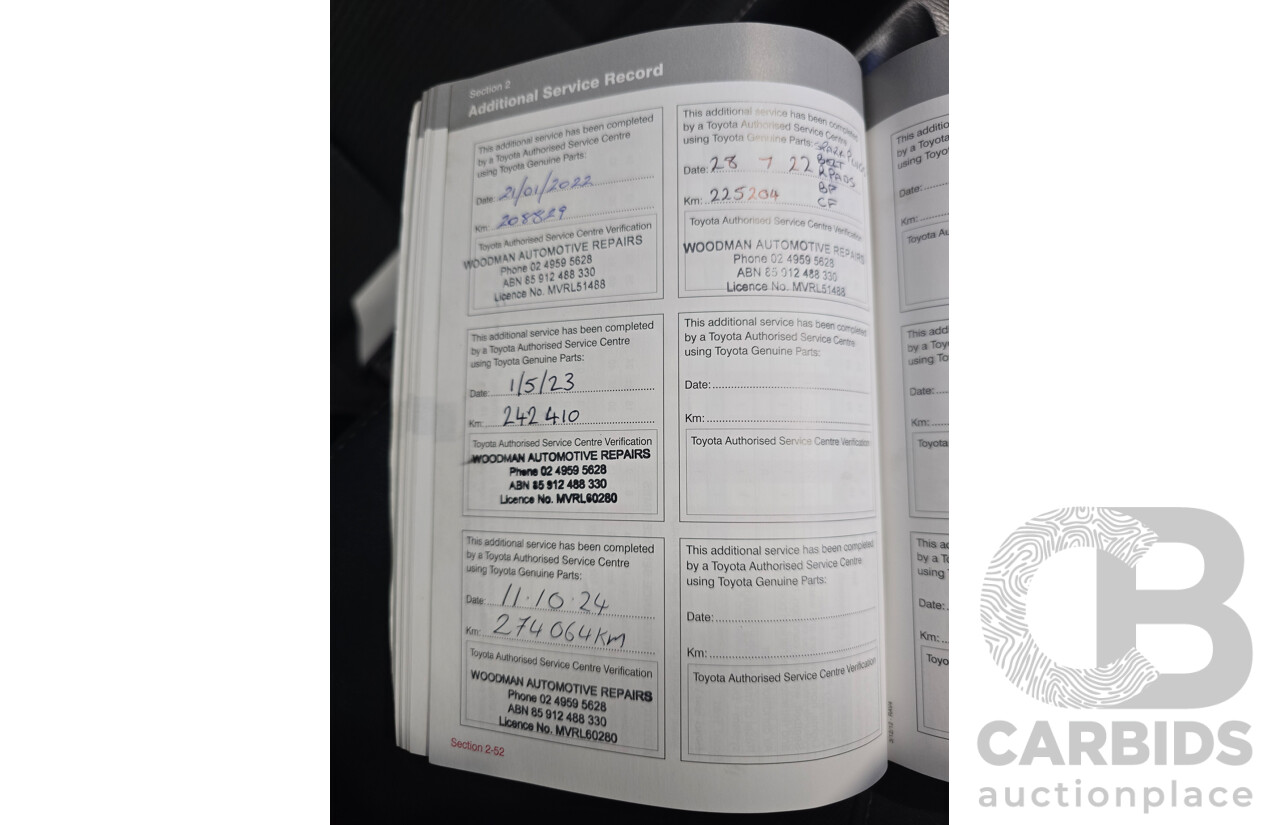 Section 2
Additional Service Record
This additional service has been completed
by a Toyota Authorised Service Centre
using Toyota Genuine Parts:
Date: 21/01/2022
Km: 208829
Toyota Authorised Service Centre Verification
WOODMAN AUTOMOTIVE REPAIRS
Phone 02 4959 5628
ABN 85 912 488 330
Licence No. MVRL51488
This additional service has been completed
by a Toyota Authorised Service Centre
using Toyota Genuine Parts: SPARK PLUGS
Date: 28 7 22 BELT
R PADS
Km: 225204 BF
CF
Toyota Authorised Service Centre Verification
WOODMAN AUTOMOTIVE REPAIRS
Phone 02 4959 5628
ABN 85 912 488 330
Licence No. MVRL51488
This additional service has been completed
by a Toyota Authorised Service Centre
using Toyota Genuine Parts:
Date: 1/5/23
Km: 242 410
Toyota Authorised Service Centre Verification
WOODMAN AUTOMOTIVE REPAIRS
Phone 02 4959 5628
ABN 85 912 488 330
Licence No. MVRL60280
This additional service has been completed
by a Toyota Authorised Service Centre
using Toyota Genuine Parts:
Date:
Km:
Toyota Authorised Service Centre Verification
This additional service has been completed
by a Toyota Authorised Service Centre
using Toyota Genuine Parts:
Date: 11.10.24
Km: 274064KM
Toyota Authorised Service Centre Verification
WOODMAN AUTOMOTIVE REPAIRS
Phone 02 4959 5628
ABN 85 912 488 330
Licence No. MVRL60280
This additional service has been completed
by a Toyota Authorised Service Centre
using Toyota Genuine Parts:
Date:
Km:
Toyota Authorised Service Centre Verification
Section 2-52
This additio
by a Toyo
using Toyo
Date:
Km:
Toyota Au
This addi
by a Toy
using To
Date:
Km:
Toyota
This ad
by a To
using
Date:
Km:
Toyo
CB
CARBIDS
auctionplace